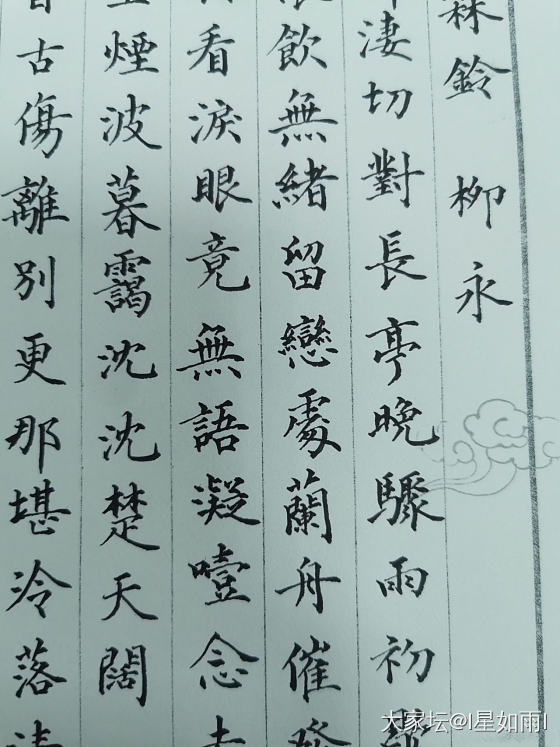 霖鈴 柳永
淒切對長亭晚驟雨初
飲無緒留戀處蘭舟催發
看淚眼竟無語凝噎念去
煙波暮靄沈沈楚天闊
古傷離別更那堪冷落清
大家坛@I星如雨I